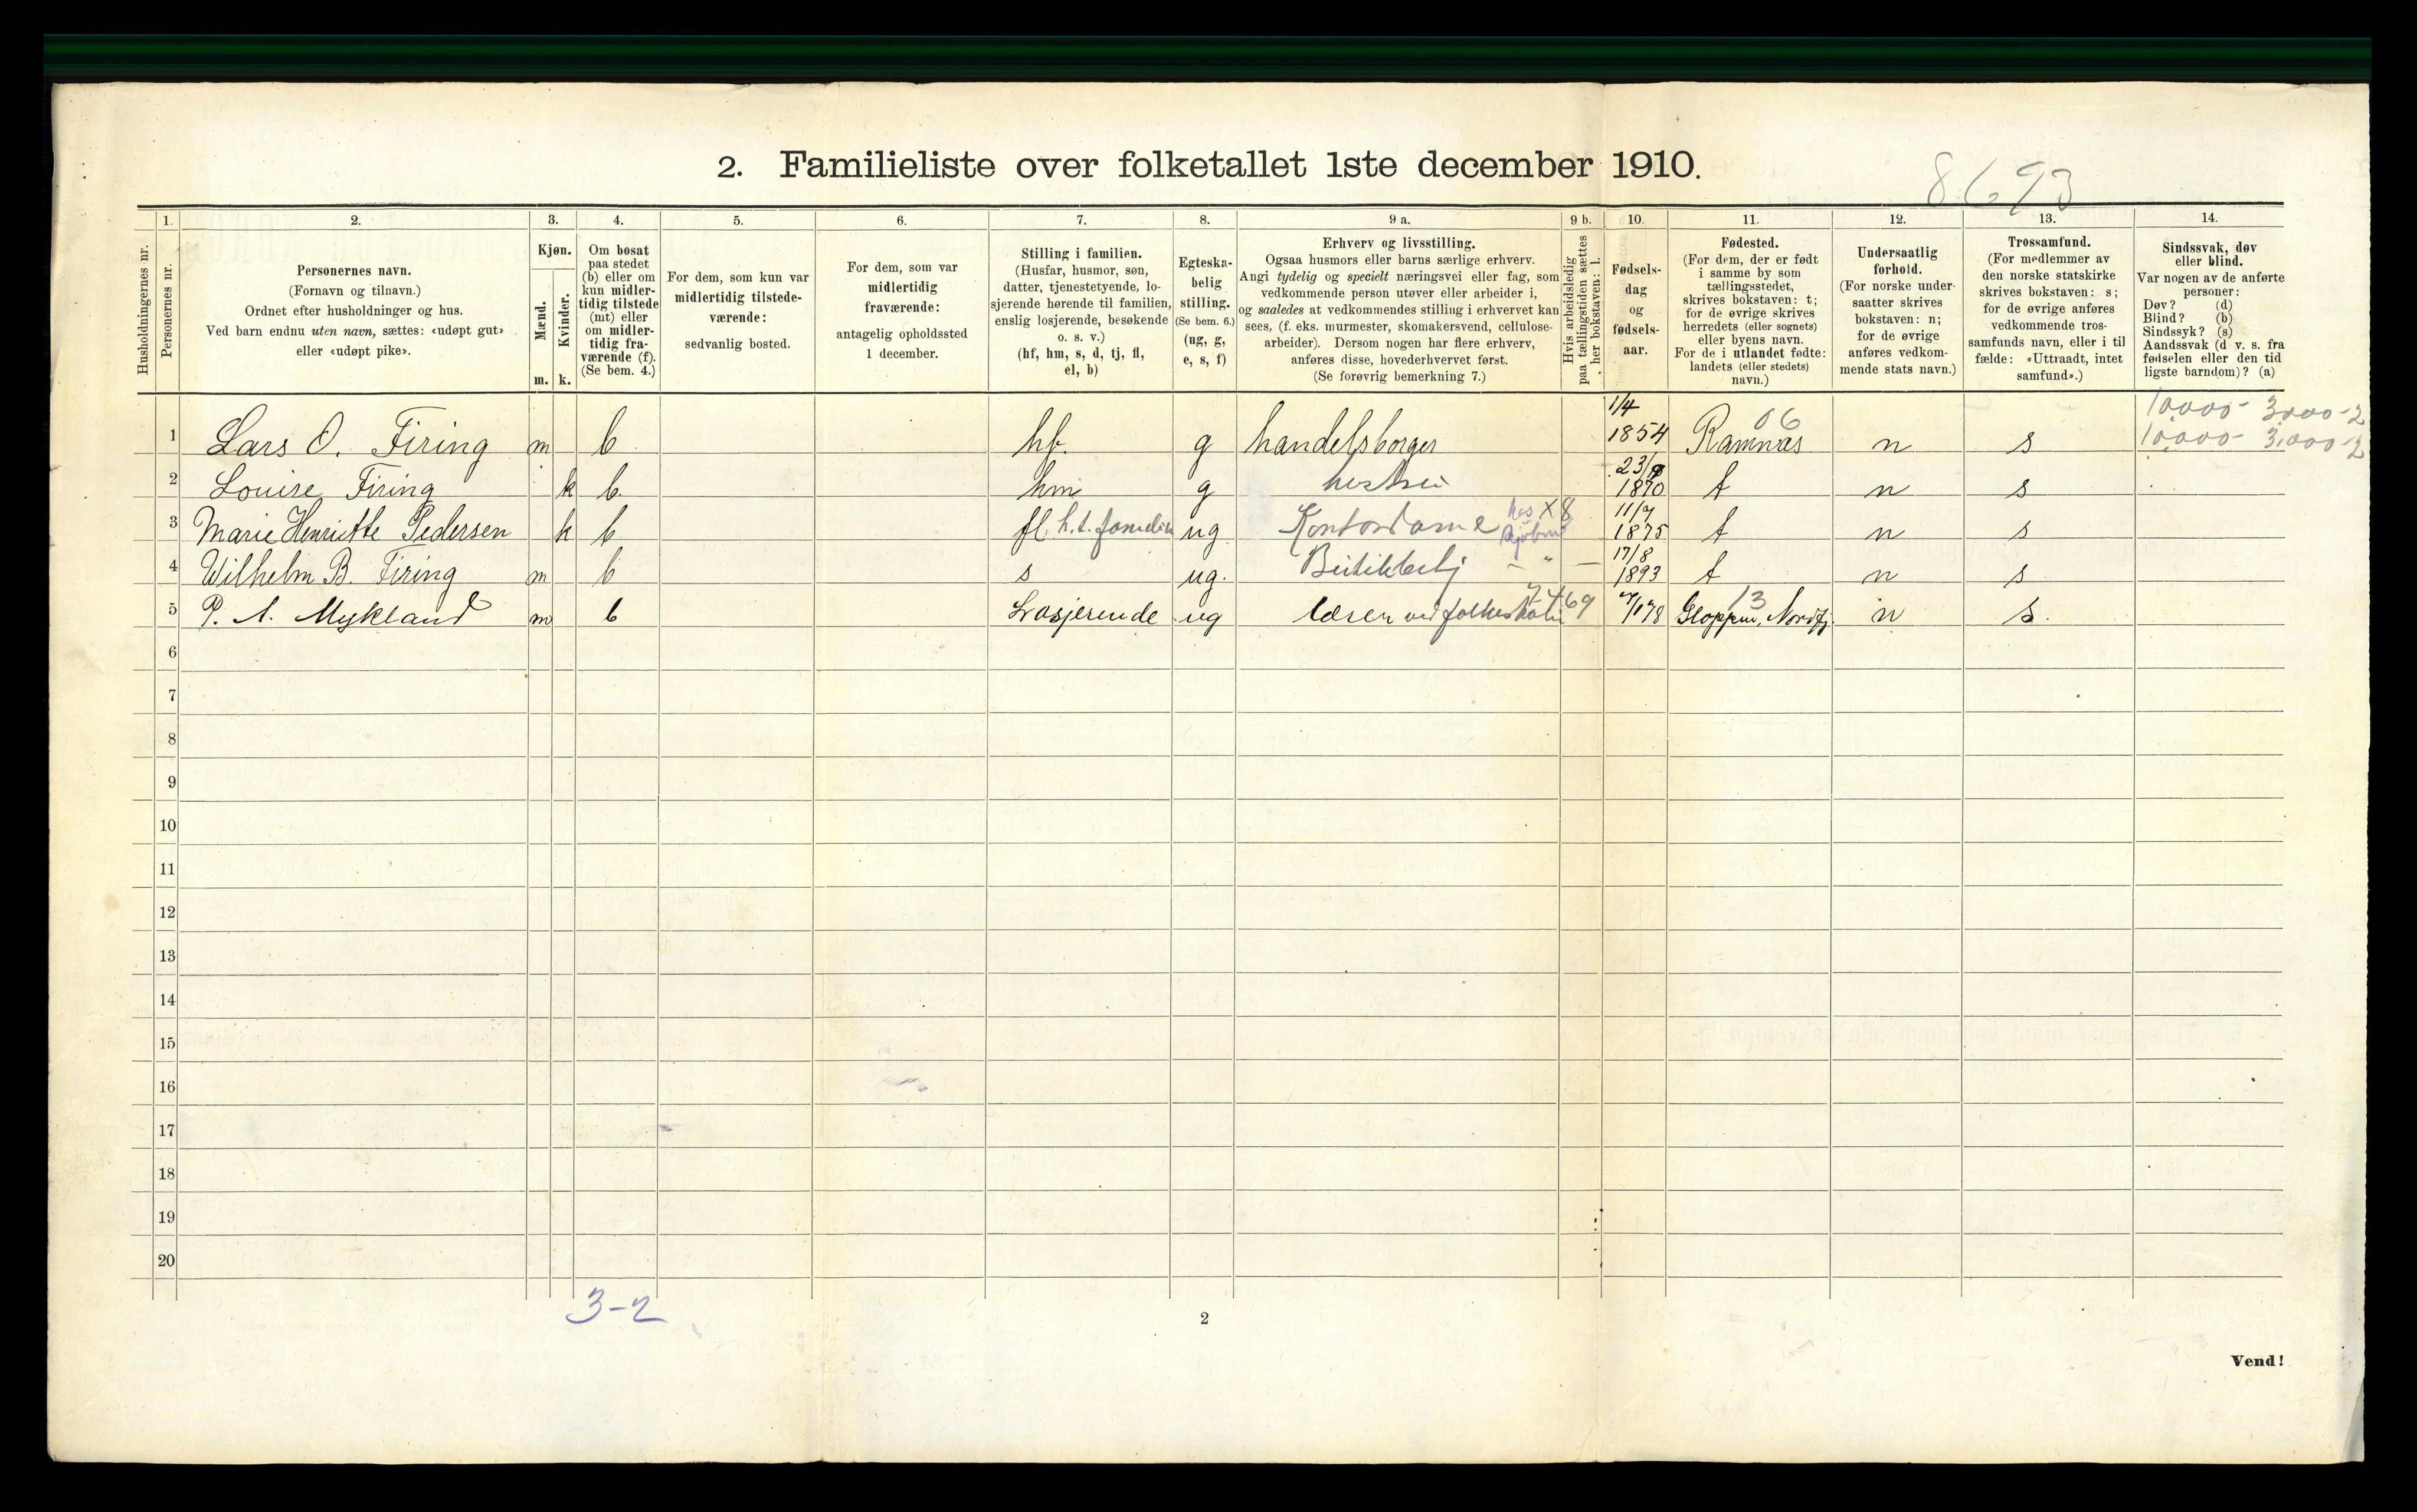 2. Familieliste over folketallet 1ste december 1910.
8693
1. 2. 3. 4. 5. 6. 7. 8. 9 a. 9 b. 10. 11. 12. 13. 14.
Husholdningernes nr.
Personernes nr.
Personernes navn.
(Fornavn og tilnavn.)
Ordnet efter husholdninger og hus.
Ved barn endnu uten navn, sættes: «udøpt gut»
eller «udøpt pike».
Kjøn.
Mænd.
Kvinder.
m. k.
Om bosat
paa stedet
(b) eller om
kun midler-
tidig tilstede
(mt) eller
om midler-
tidig fra-
værende (f).
(Se bem. 4.)
For dem, som kun var
midlertidig tilstede-
værende:
sedvanlig bosted.
For dem, som var
midlertidig
fraværende:
antagelig opholdssted
1 december.
Stilling i familien.
(Husfar, husmor, søn,
datter, tjenestetyende, lo-
sjerende hørende til familien,
enslig losjerende, besøkende
o. s. v.)
(hf, hm, s, d, tj, fl,
el, b)
Egteska-
belig
stilling.
(Se bem. 6.)
(ug, g,
e, s, f)
Erhverv og livsstilling.
Ogsaa husmors eller barns særlige erhverv.
Angi tydelig og specielt næringsvei eller fag, som
vedkommende person utøver eller arbeider i,
og saaledes at vedkommendes stilling i erhvervet kan
sees, (f. eks. murmester, skomakersvend, cellulose-
arbeider). Dersom nogen har flere erhverv,
anføres disse, hovederhvervet først.
(Se forøvrig bemerkning 7.)
Hvis arbeidsledig
paa tællingstiden sættes
her bokstaven: l.
Fødsels-
dag
og
fødsels-
aar.
Fødested.
(For dem, der er født
i samme by som
tællingsstedet,
skrives bokstaven: t;
for de øvrige skrives
herredets (eller sognets)
eller byens navn.
For de i utlandet fødte:
landets (eller stedets)
navn.)
Undersaatlig
forhold.
(For norske under-
saatter skrives
bokstaven: n;
for de øvrige
anføres vedkom-
mende stats navn.)
Trossamfund.
(For medlemmer av
den norske statskirke
skrives bokstaven: s;
for de øvrige anføres
vedkommende tros-
samfunds navn, eller i til
fælde: «Uttraadt, intet
samfund».)
Sindssvak, døv
eller blind.
Var nogen av de anførte
personer:
Døv? (d)
Blind? (b)
Sindssyk? (s)
Aandssvak (d v. s. fra
fødselen eller den tid
ligste barndom)? (a)
1/4 06 10000- 3000-2
1 Lars O. Firing m b hf. g handelsborger 1854 Ramnæs n s 10000- 3.000-2
2 Louise Firing k b. hm g 23/9 1870 t n s
3 Marie Henriette Pedersen k b fl. h.t. familien ug Kontordame hos X8 11/7 1875 t n s
4 Wilhelm B. Firing m b s ug. Butikbetj — " — 17/8 1893 t n s
5 P. A. Mykland m b Losjerende ug lærer ved folkeskolen 7469 /178 13 Gloppen, Nordfj. n s.
6
7
8
9
10
11
12
13
14
15
16
17
18
19
20
3-2
2
Vend!